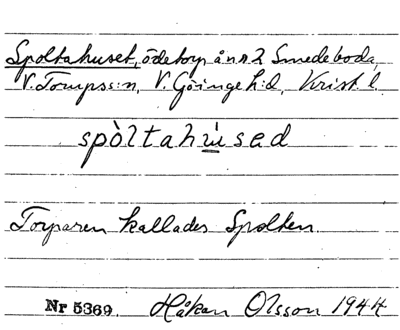 Spoltahuset, ödetorp å nr 2 Smedeboda,
V. Torups s:n, V. Göinge h:d, Krist. l.
spòltahú̲sed
Torparen kallades Spolten.
Nr 5369. Håkan Olsson 1944